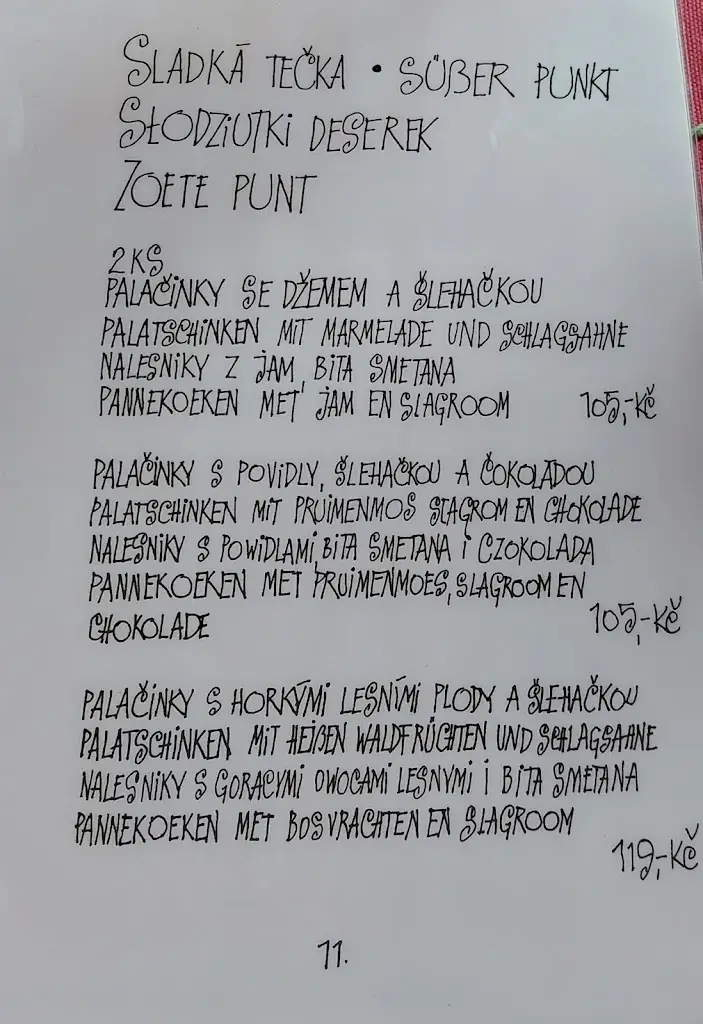 SLADKÁ TEČKA • SÜßER PUNKT
SŁODZIUTKI DESEREK
ZOETE PUNT
2 KS
PALAČINKY SE DŽEMEM A ŠLEHAČKOU
PALATSCHINKEN MIT MARMELADE UND SCHLAGSAHNE
NALESNIKY Z JAM, BITA SMETANA
PANNEKOEKEN MET JAM EN SLAGROOM 105,-Kč
PALAČINKY S POVIDLY, ŠLEHAČKOU A ČOKOLÁDOU
PALATSCHINKEN MIT PRUIMENMOS SLAGROM EN CHOKOLADE
NALESNIKY S POWIDLAMI, BITA SMETANA I CZOKOLADA
PANNEKOEKEN MET PRUIMENMOES, SLAGROOM EN
CHOKOLADE 105,-Kč
PALAČINKY S HORKÝMI LESNÍMI PLODY A ŠLEHAČKOU
PALATSCHINKEN MIT HEIßEN WALDFRÜCHTEN UND SCHLAGSAHNE
NALESNIKY S GORACYMI OWOCAMI LESNYMI I BITA SMETANA
PANNEKOEKEN MET BOSVRACHTEN EN SLAGROOM
119,-Kč
11.